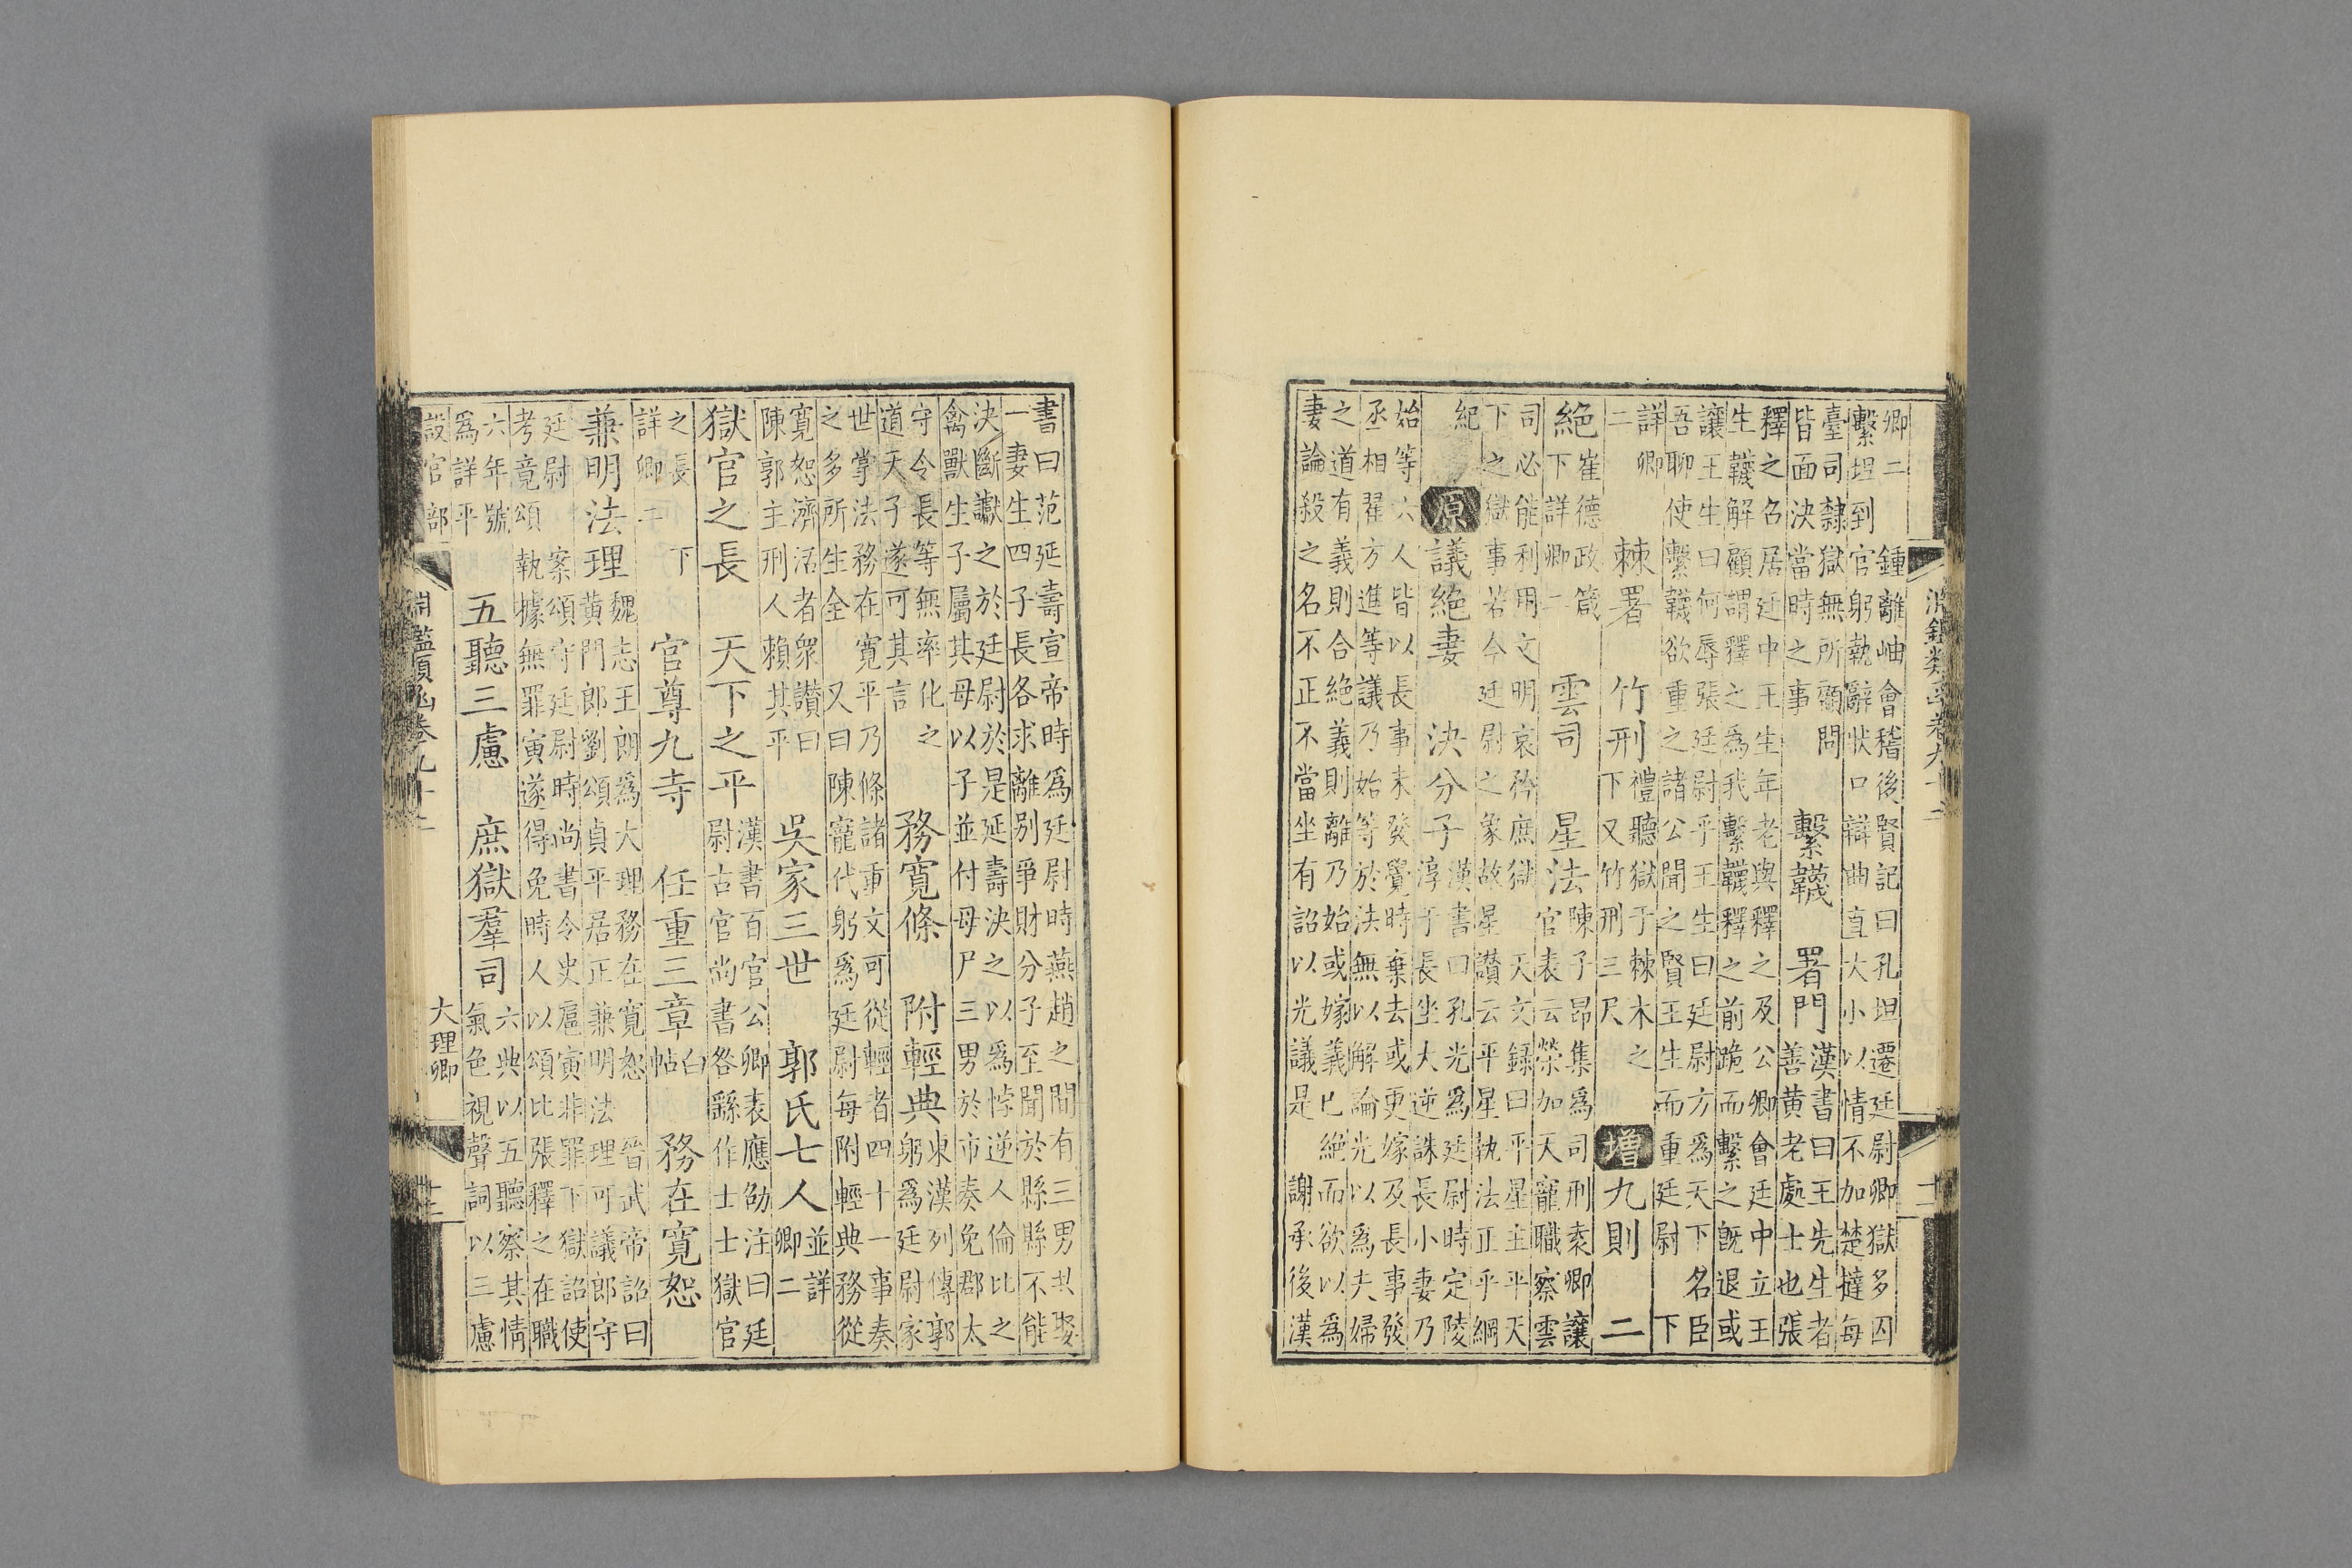 淵鑑類函卷九十二
卿二　鍾離岫會稽後賢記曰孔坦遷廷尉卿獄多囚
繫坦到官躬執辭狀口辯曲直大小以情不加楚撻每
臺司隸獄無所顧問
皆面決當時之事
繫韈　署門
漢書曰王先生者
善黃老處士也張
釋之召居廷中王生年老與釋之及公卿會廷中立王
生韈解顧謂釋之爲我繫韈釋之前跪而繫之旣退或
讓王生曰何辱張廷尉乎王生曰廷尉方爲天下名臣
吾聊使繫韈欲重之諸公聞之賢王生而重廷尉　下
詳卿
二
棘署　竹刑
禮聽獄于棘木之
下又竹刑三尺
增九則　二
絕
崔德政箴
下詳卿二
雲司　星法
陳子昂集爲司刑袁卿讓
官表云榮加天寵職察雲
司必能利用文明哀矜庶獄　天文錄曰平星主平天
下之獄事若今廷尉之象故星讚云平星執法正乎綱
紀
原議絕妻　決分子
漢書曰孔光爲廷尉時定陵
淳于長坐大逆誅長小妻乃
始等六人皆以長事未發覺時棄去或更嫁及長事發
丞相翟方進等議乃始等於法無以解論光以爲夫婦
之道有義則合絕義則離乃始或嫁義已絕而欲以爲
妻論殺之名不正不當坐有詔以光議是　謝承後漢
書曰范延壽宣帝時爲廷尉時燕趙之間有三男共娶
一妻生四子長各求離別爭財分子至聞於縣縣不能
決斷讞之於廷尉於是延壽決之以爲悖逆人倫比之
禽獸生子屬其母以子並付母尸三男於市奏免郡太
守令長等無率化之
道天子遂可其言
務寬條　附輕典
東漢列傳郭
躬爲廷尉家
世掌法務在寬平乃條諸重文可從輕者四十一事奏
之多所生全　又曰陳寵代躬爲廷尉每附輕典務從
寬恕濟活者衆讚曰
陳郭主刑人賴其平
吳家三世　郭氏七人
並詳
卿二
獄官之長　天下之平
漢書百官公卿表應劭注曰廷
尉古官尚書咎繇作士士獄官
之長　下
詳卿二
官尊九寺　任重三章
白
帖
務在寬恕
兼明法理
魏志王朗爲大理務在寬恕　晉武帝詔曰
黃門郎劉頌貞平居正兼明法理可議郎守
廷尉　案頌守廷尉時尚書令史扈寅非罪下獄詔使
考竟頌執據無罪寅遂得免時人以頌比張釋之在職
六年號
爲詳平
五聽三慮　庶獄羣司
六典以五聽察其情
氣色視聲詞以三慮
淵鑑類函卷九十二
大理卿